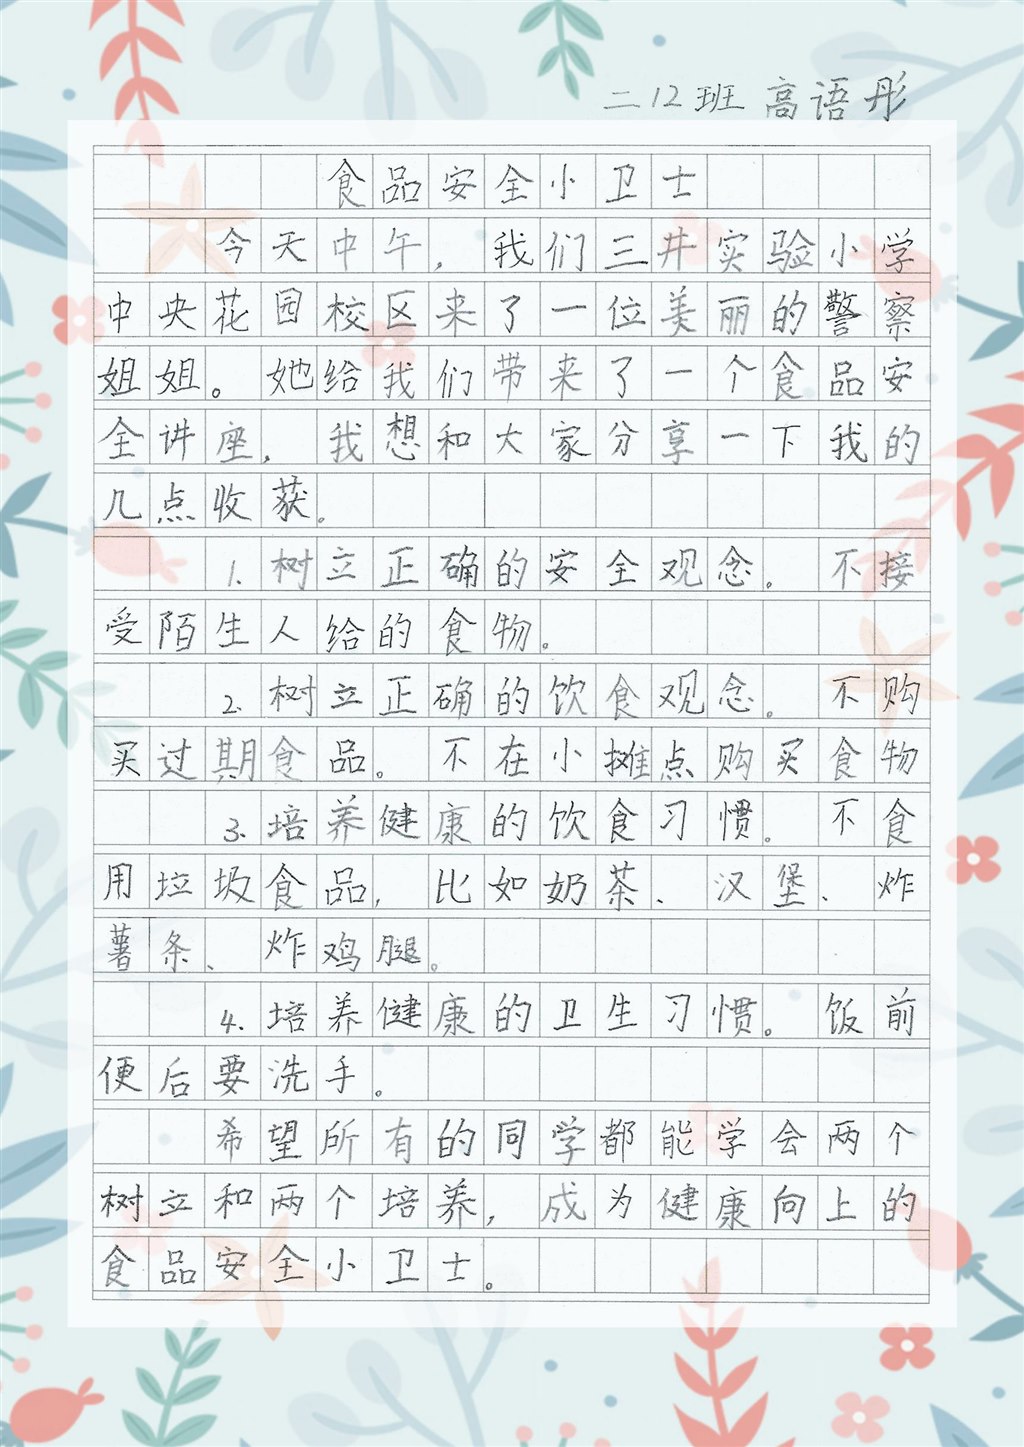 二12班 高语彤
食品安全小卫士
今天中午，我们三井实验小学
中央花园校区来了一位美丽的警察
姐姐。她给我们带来了一个食品安
全讲座，我想和大家分享一下我的
几点收获。
1.树立正确的安全观念。不接
受陌生人给的食物。
2.树立正确的饮食观念。不购
买过期食品。不在小摊点购买食物
3.培养健康的饮食习惯。不食
用垃圾食品，比如奶茶、汉堡、炸
薯条、炸鸡腿。
4.培养健康的卫生习惯。饭前
便后要洗手。
希望所有的同学都能学会两个
树立和两个培养，成为健康向上的
食品安全小卫士。